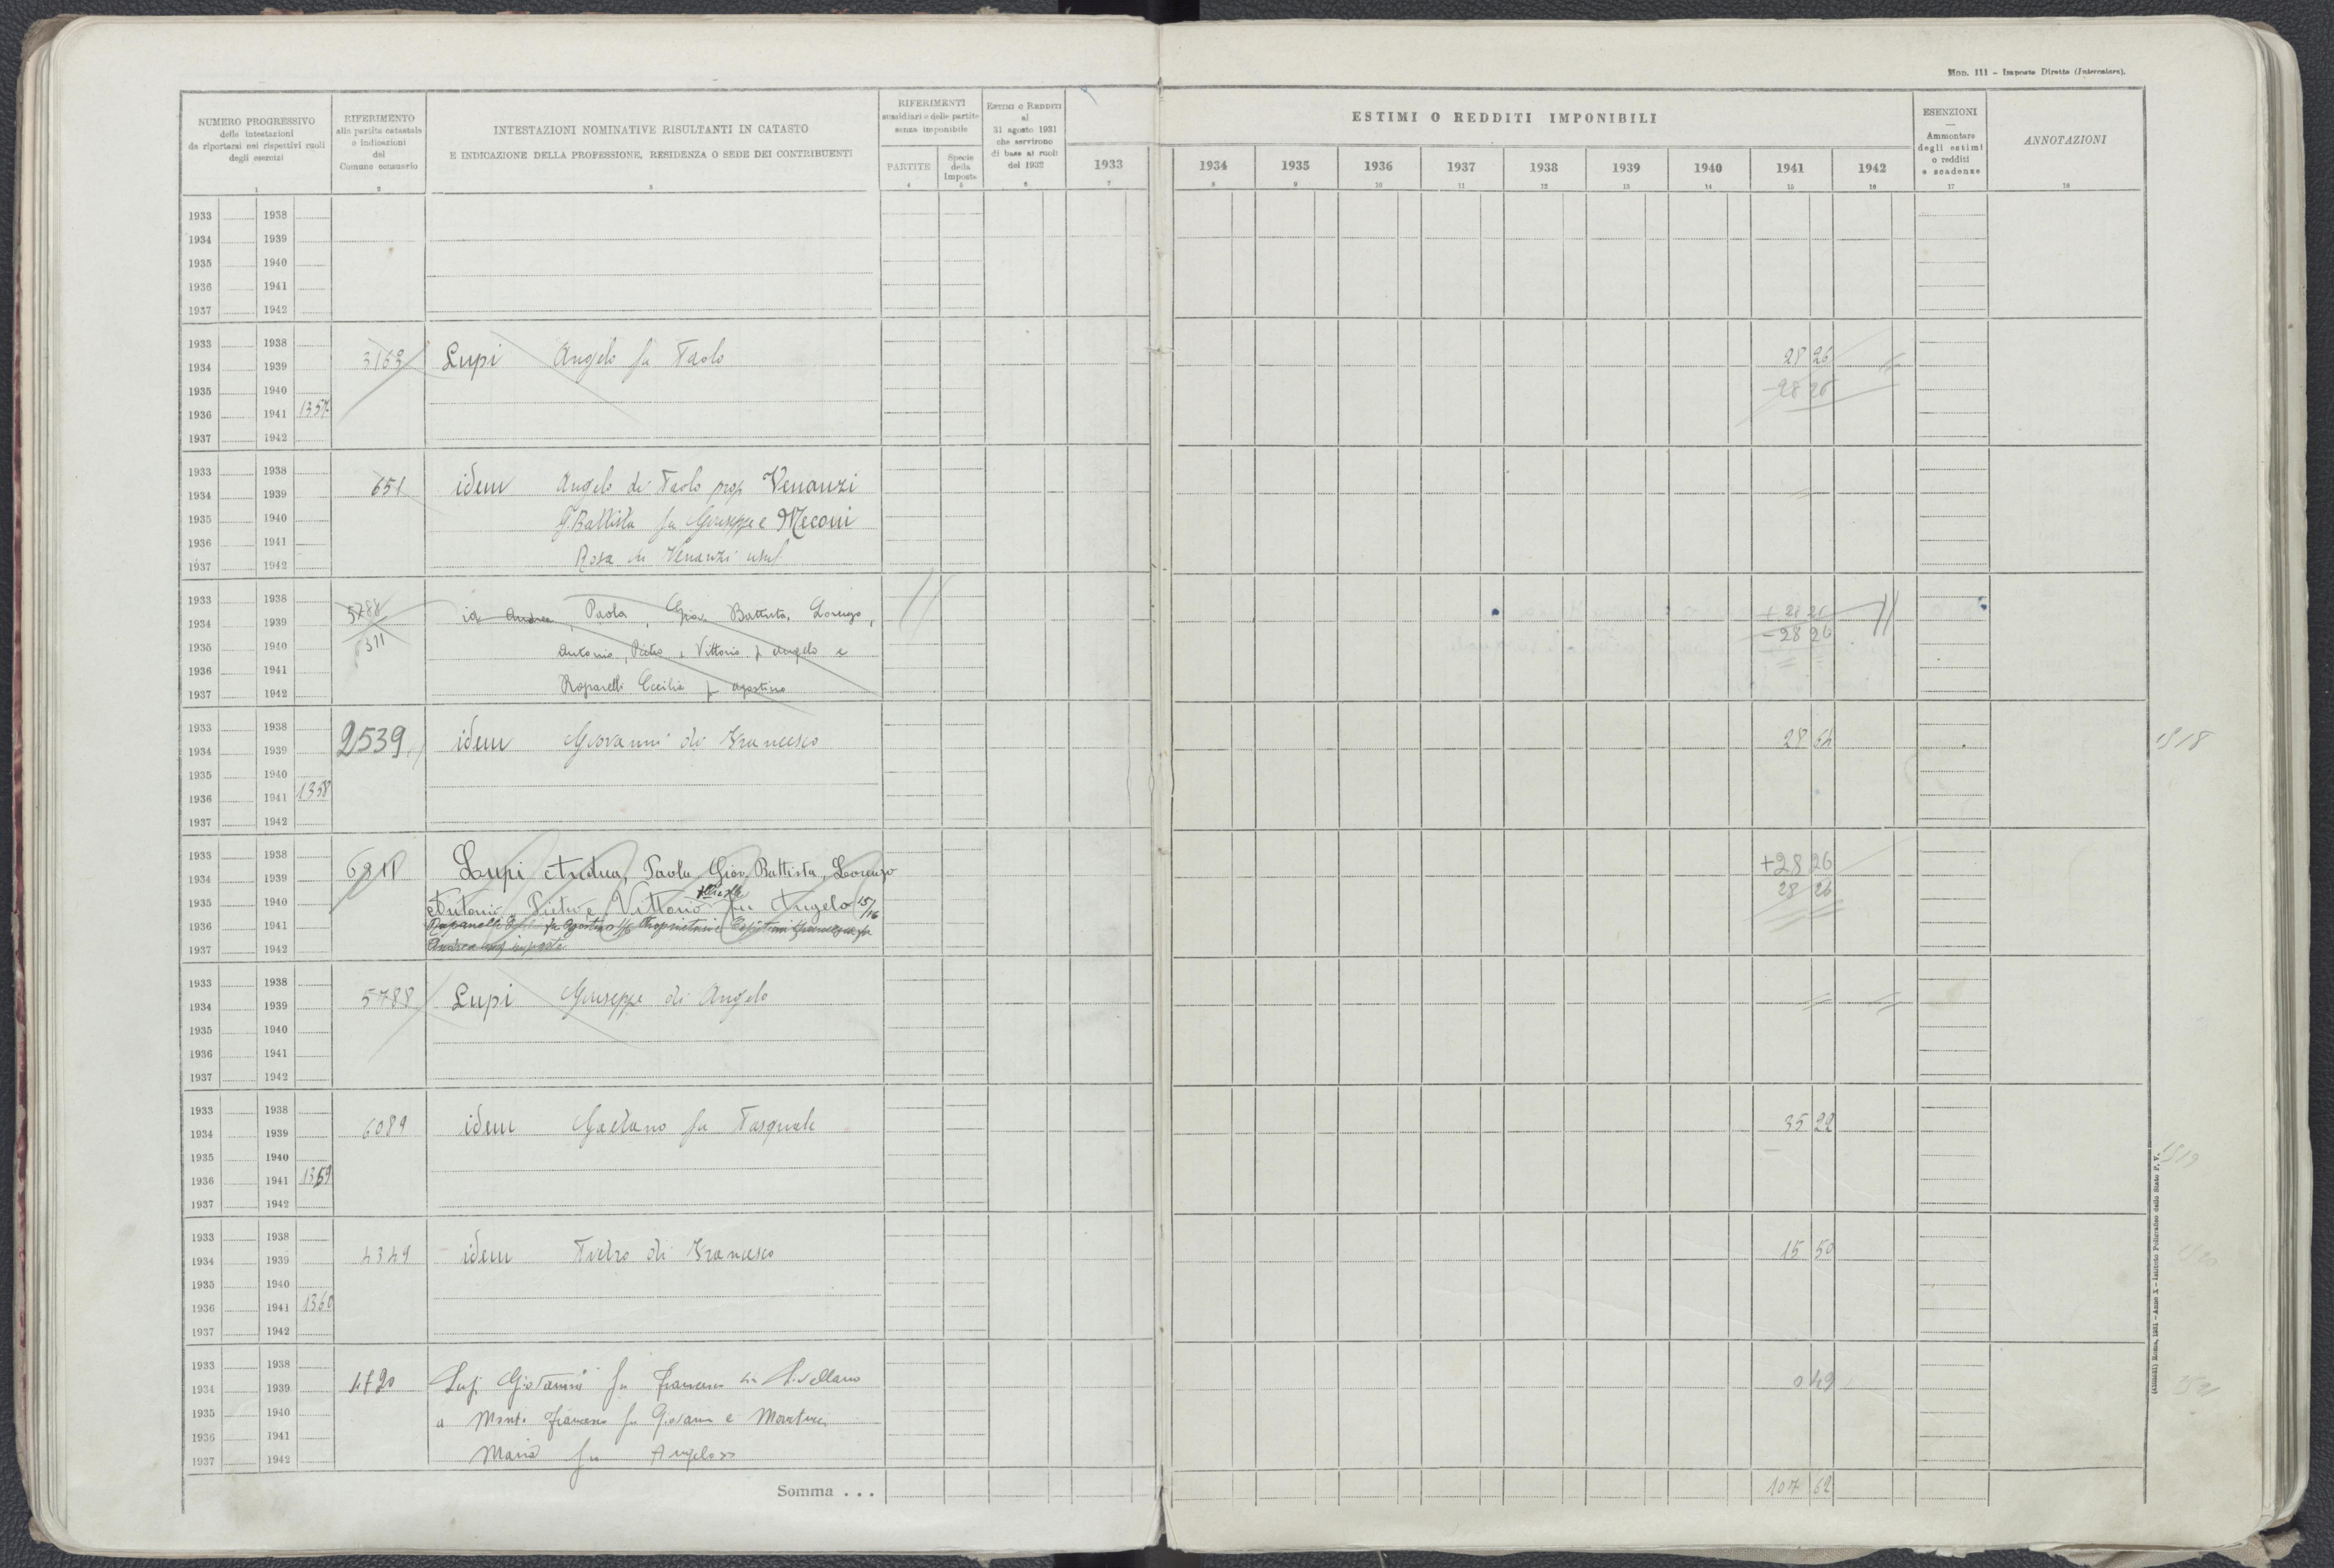 Mod. 111 - Imposte Dirette (Intercalare).
NUMERO PROGRESSIVO
delle intestazioni
da riportarsi nei rispettivi ruoli
degli esercizi
1
RIFERIMENTO
alla partita catastale
e indicazioni
del
Comune censuario
2
INTESTAZIONI NOMINATIVE RISULTANTI IN CATASTO
E INDICAZIONE DELLA PROFESSIONE, RESIDENZA O SEDE DEI CONTRIBUENTI
3
RIFERIMENTI
sussidiari e delle partite
senza imponibile
PARTITE
4
Specie
della
Imposta
5
ESTIMI O REDDITI
al
31 agosto 1931
che servirono
di base ai ruoli
del 1932
6
1933
7
ESTIMI O REDDITI IMPONIBILI
1934 1935 1936 1937 1938 1939 1940 1941 1942
8 9 10 11 12 13 14 15 16
ESENZIONI
Ammontare
degli estimi
o redditi
e scadenze
17
ANNOTAZIONI
18
1933 1938
1934 1939
1935 1940
1936 1941
1937 1942
1933 1938
1934 1939 3163 Lupi Angelo fu Paolo 28 26
1935 1940 -28 26
1936 1941 1357
1937 1942
1933 1938
1934 1939 651 idem Angelo di Paolo prop Venanzi
1935 1940 G.Battista fu Giuseppe e Meconi
1936 1941
1937 1942 Rosa di Venanzi usuf
1933 1938 5788
1934 1939 id Andrea, Paola, Giov Battista, Lorenzo, + 28 26
1935 1940 Antonio, Pietro e Vittorio f Angelo e - 28 26
1936 1941
1937 1942 Cecilia f Agostino
1933 1938
1934 1939 2539 idem Giovanni di Francesco 28 1518
1935 1940
1936 1941 1358
1937 1942
1933 1938
1934 1939 Lupi Andrea, Paola Giov Battista, Lorenzo +28 26
1935 1940 Antonio, Pietro e Vittorio fu Angelo 15/16 28 26
1936 1941 fu Agostino
1937 1942 Andrea
1933 1938
1934 1939 5788 Lupi Giuseppe di Angelo
1935 1940
1936 1941
1937 1942
1933 1938
1934 1939 6089 idem Gaetano fu Pasquale 35 22
1935 1940 1519
1936 1941 1359
1937 1942
1933 1938
1934 1939 4349 idem Pietro di Francesco 15 50
1935 1940
1936 1941 1360
1937 1942
1933 1938
1934 1939 4720 Lupi Giovanni fu Francesco Livellario 0 49
1935 1940 a Monti Francesco fu Giovanni e
1936 1941
1937 1942 Maria fu Angelo
Somma . . . 107 62
Roma, 1931 - Anno X - Istituto Poligrafico dello Stato P. V.